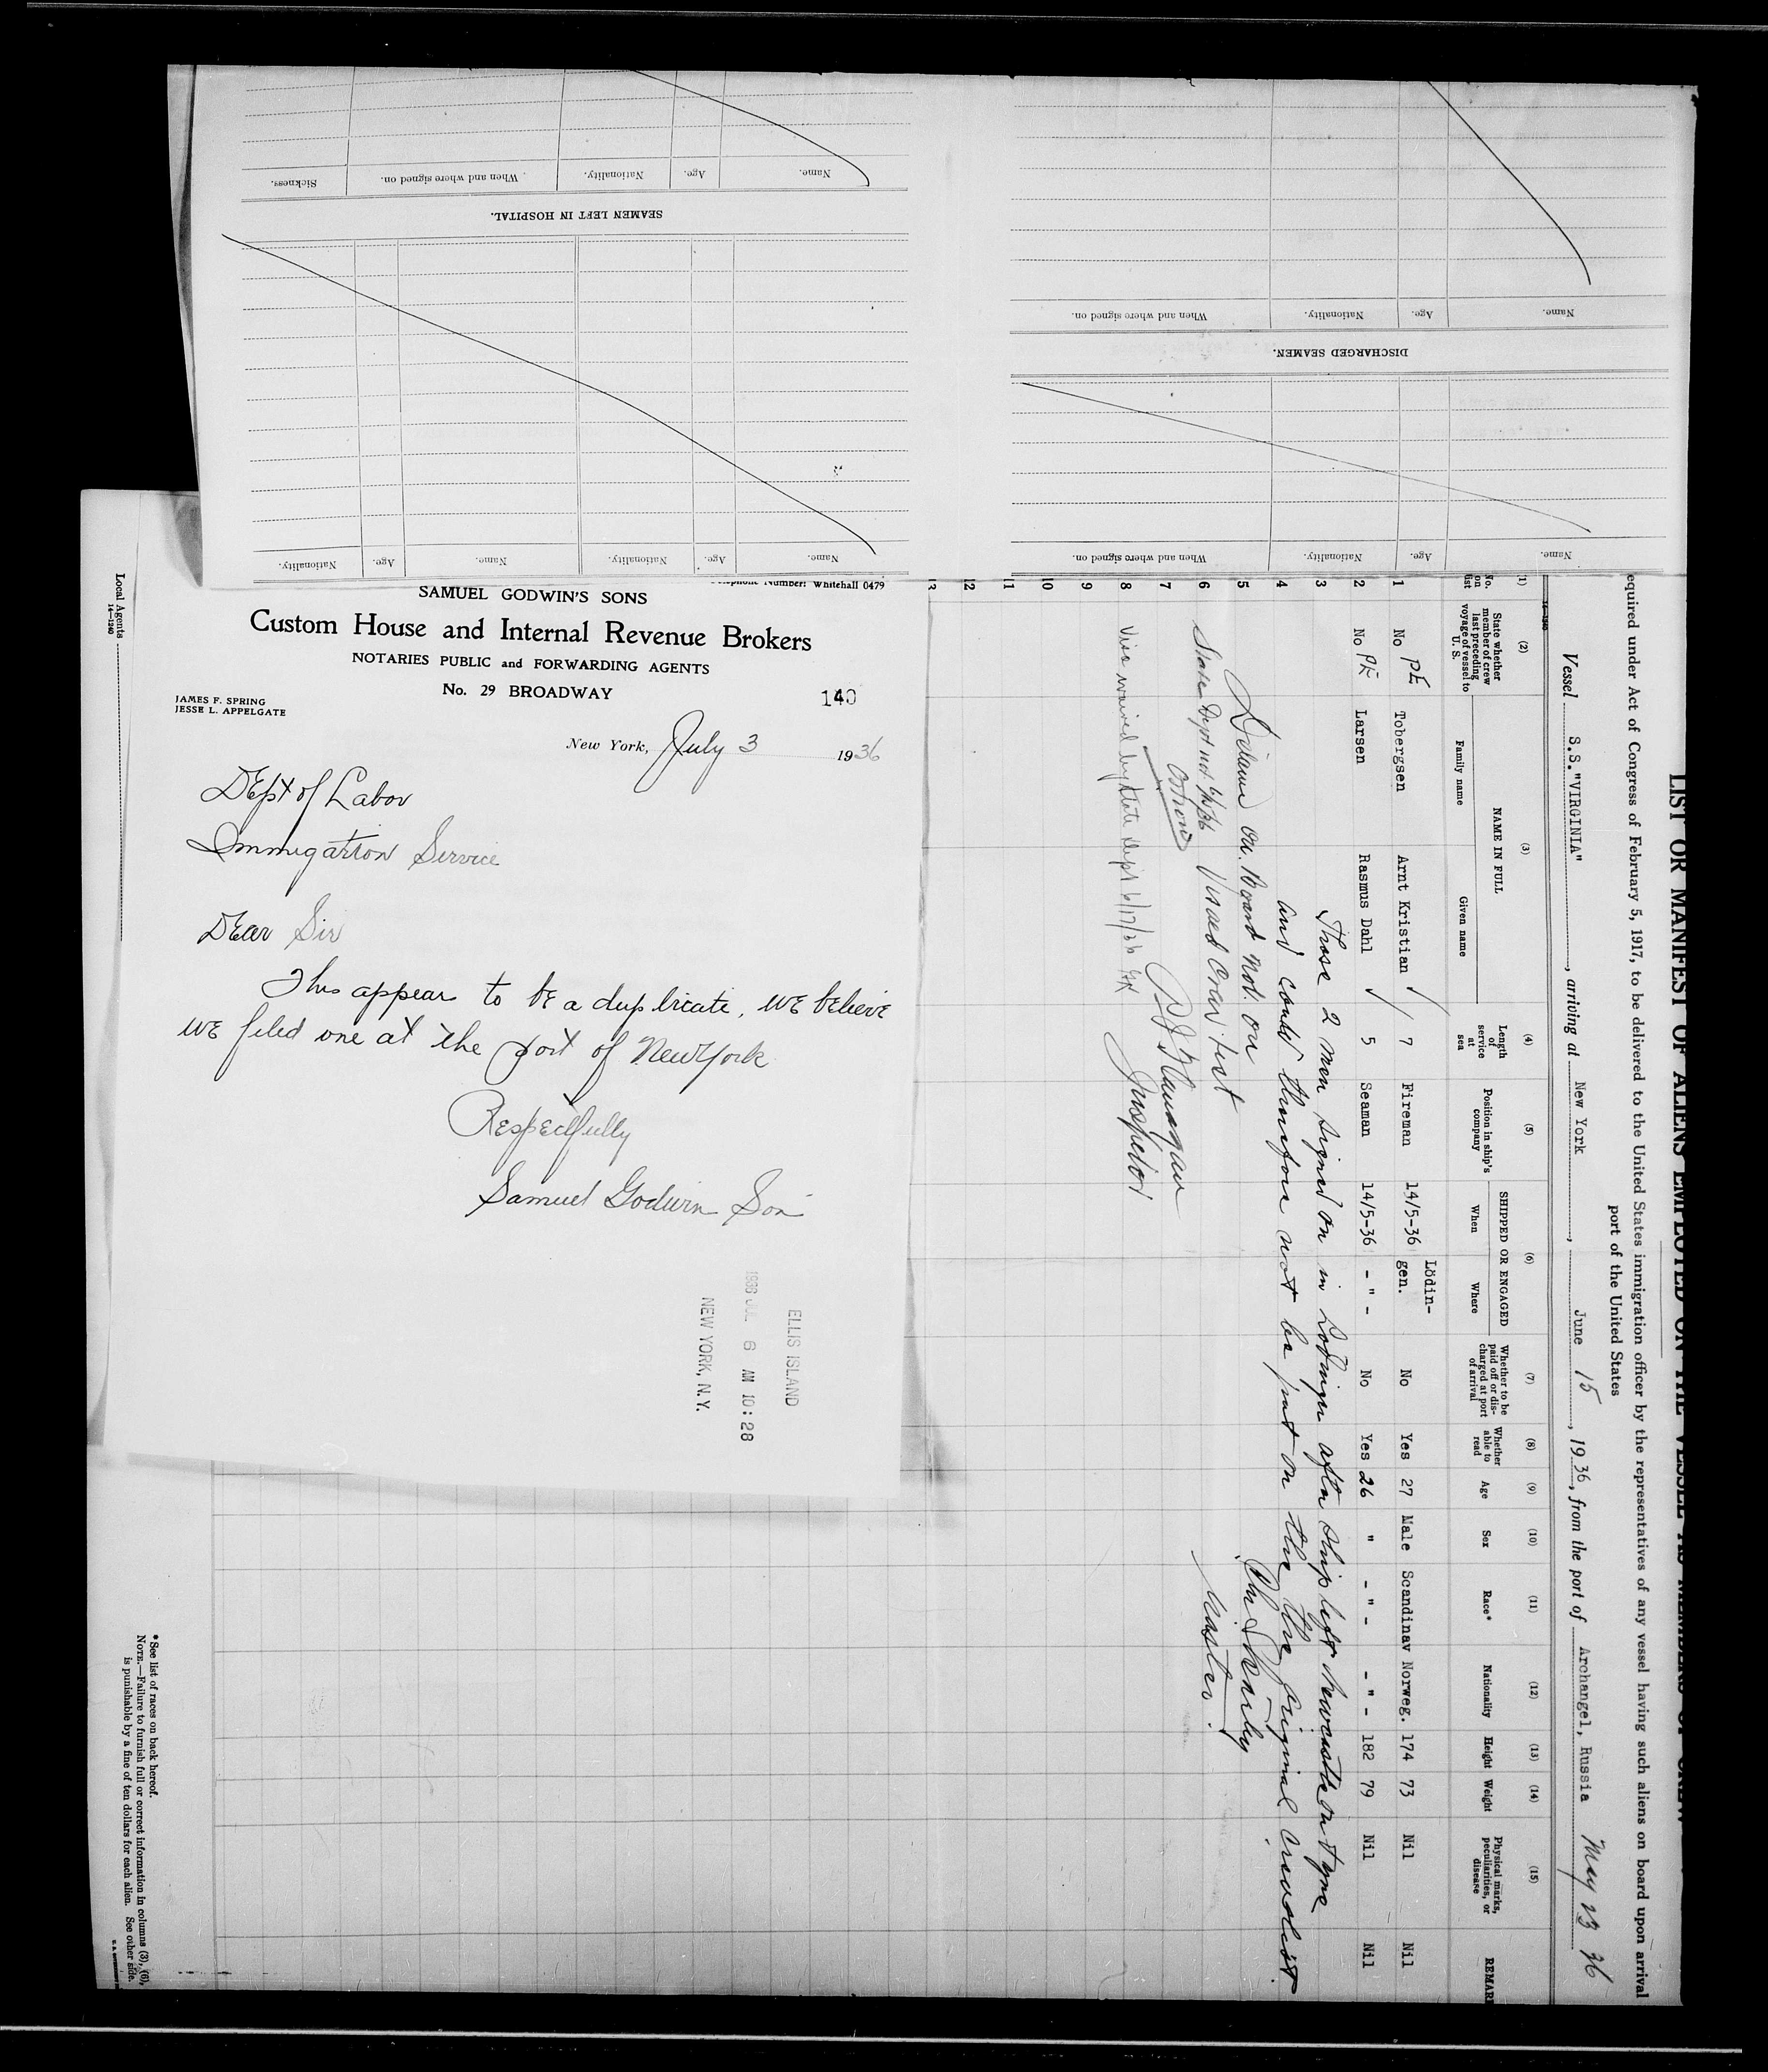 Sickness.
When and where signed on.
Nationality.
Age.
Name.
SEAMEN LEFT IN HOSPITAL.
Nationality.
Age.
Name.
Nationality.
Age.
Name.
When and where signed on.
Nationality.
Age.
Name.
DISCHARGED SEAMEN.
When and where signed on.
Nationality.
Age.
Name.
Number: Whitehall 0479
SAMUEL GODWIN'S SONS
Custom House and Internal Revenue Brokers
NOTARIES PUBLIC and FORWARDING AGENTS
No. 29 BROADWAY
140
JAMES F. SPRING
JESSE L. APPELGATE
New York, July 3 1936
Dept of Labor
Immigation Service
Dear Sir
This appears to be a duplicate, we believe
we filed one at the port of New York
Respectfully
Samuel Godwin Son
ELLIS ISLAND
1936 JUL 6 AM 10:28
NEW YORK, N.Y.
LIST OR MANIFEST OF ALIENS EMPLOYED ON THE VESSEL AS MEMBERS OF CREW
equired under Act of Congress of February 5, 1917, to be delivered to the United States immigration officer by the representatives of any vessel having such aliens on board upon arrival
port of the United States
Vessel S.S."VIRGINIA", arriving at New York, June 15, 1936, from the port of Archangel, Russia May 23 36
(1) (2) (3) (4) (5) (6) (7) (8) (9) (10) (11) (12) (13) (14) (15)
No. on list
State whether member of crew last preceding voyage of vessel to U. S.
NAME IN FULL
Family name
Given name
Length of service at sea
Position in ship's company
SHIPPED OR ENGAGED
When
Where
Whether to be paid off or discharged at port of arrival
Whether able to read
Age
Sex
Race*
Nationality
Height
Weight
Physical marks, peculiarities, or disease
REMAR
1 No PE Tobergsen Arnt Kristian 7 Fireman 14/5-36 Lödin-gen. No Yes 27 Male Scandinav Norweg. 174 73 Nil Nil
2 No PE Larsen Rasmus Dahl 5 Seaman 14/5-36 - " - No Yes 26 " - " - - " - 182 79 Nil Nil
3 These 2 men signed on in Lodingen after ship left Newcastle on Tyne
4 and could therefore not be put on the the original crewlist
5 on Board not on
6 State Dept not Visaed Crew list
Master.
7
8 Visa waived by State dept 6/17/36
Inspector
9
10
11
12
13
Local Agents
14—1240
* See list of races on back hereof.
NOTE.—Failure to furnish full or correct information in columns (3), (6),
is punishable by a fine of ten dollars for each alien. See other side.